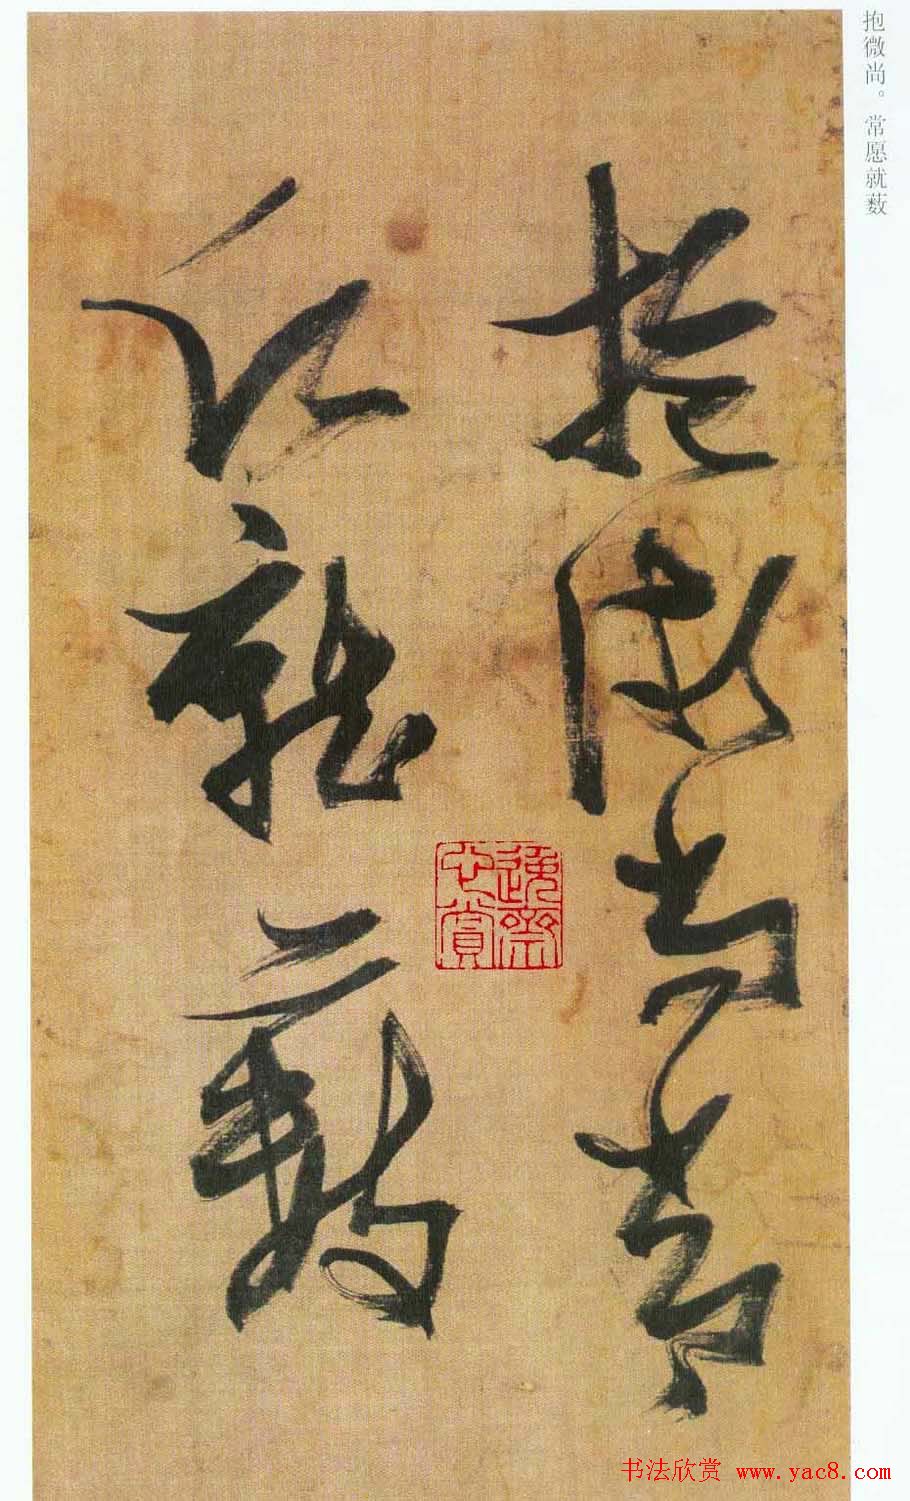 抱微尚。常愿就薮
抱微尚常
願就藪
書法欣赏 www.yac8.com